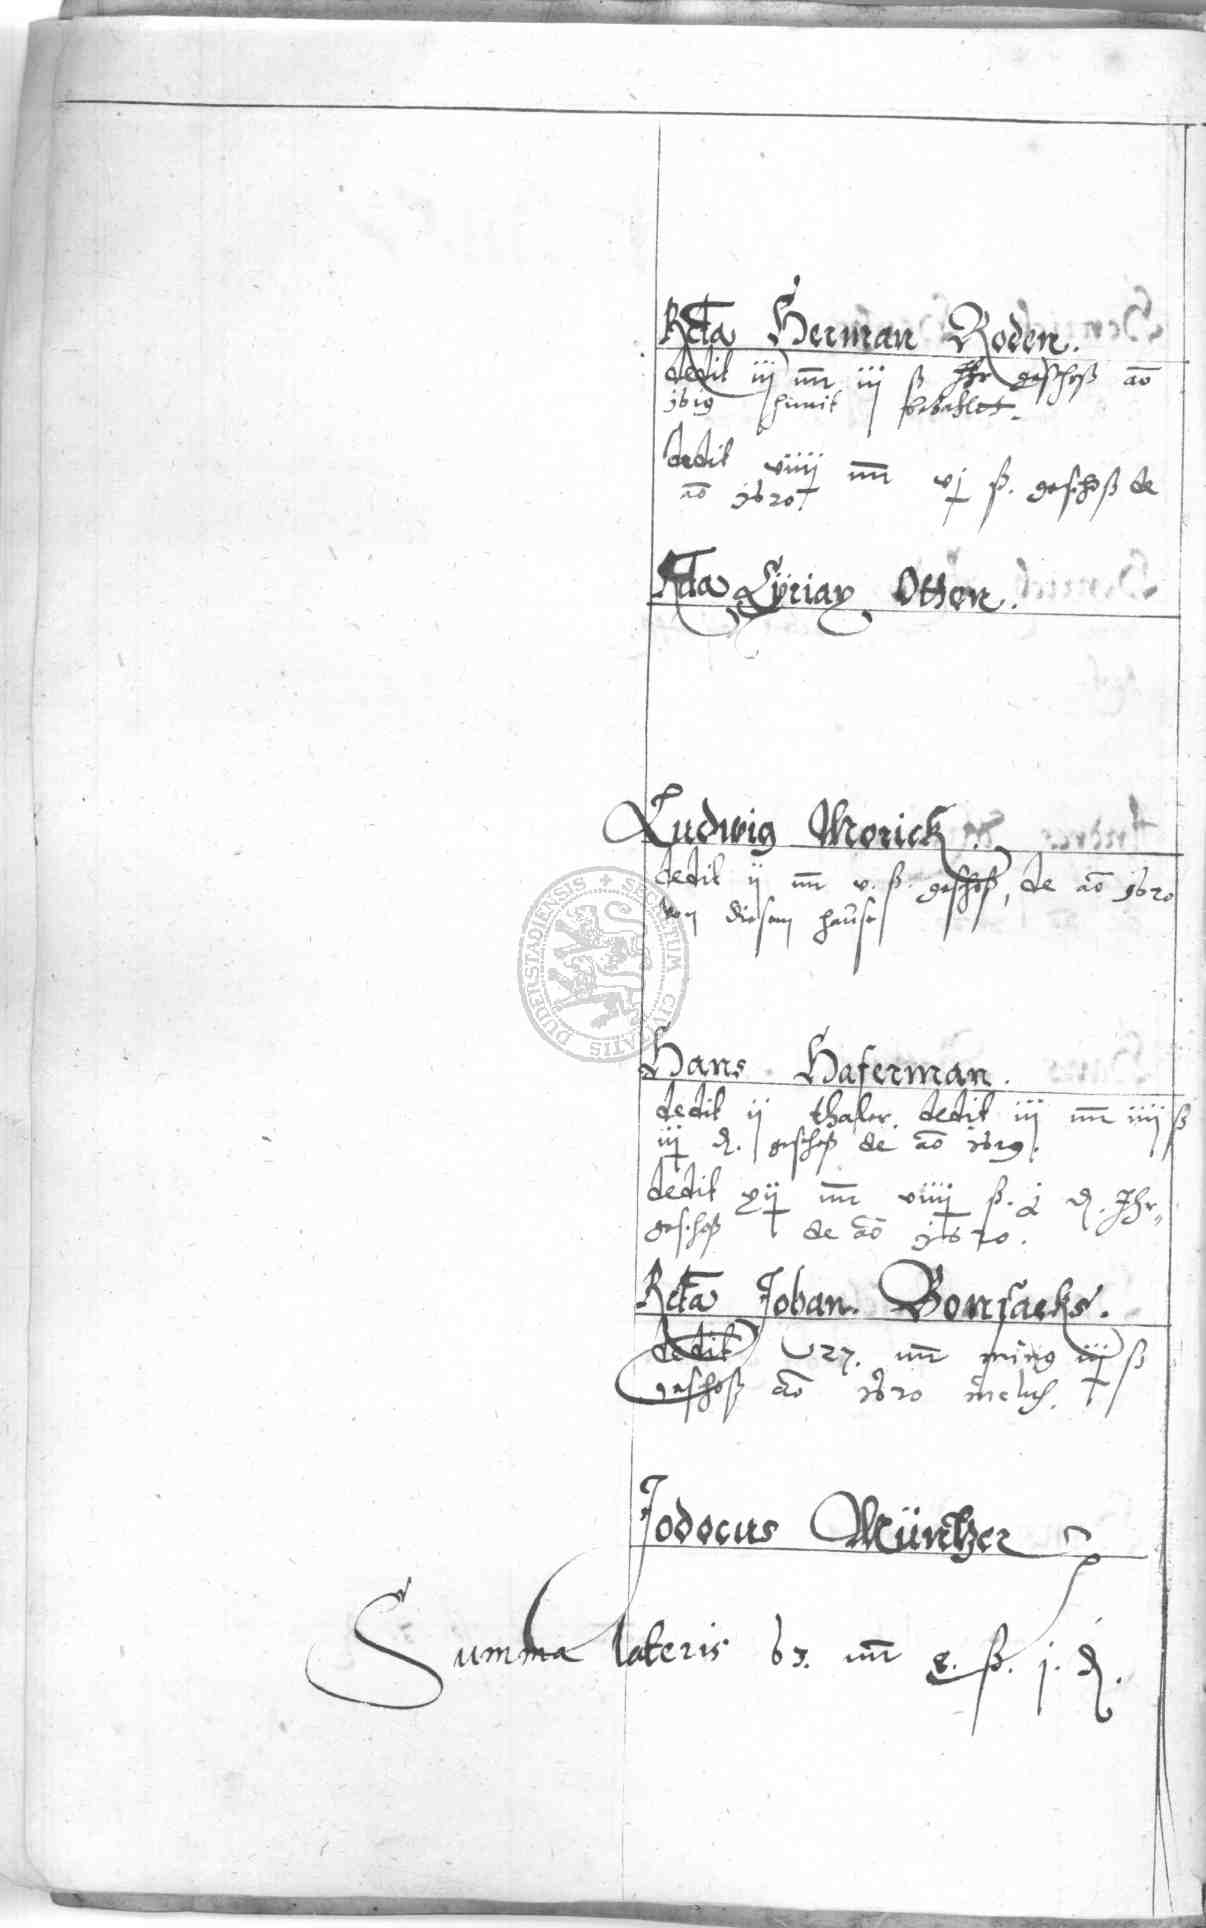 Rcta Herman Roden.
dedit iij mr iij ß Ihr geschoß ao
1619 hirmit bezahlet.
dedit viiij mr vj ß. geschoß de
ao 1620
Rcta Cÿriax Otten.
Ludwig Morick.
dedit ij mr v. ß. geschoß, de ao 1620
von diesem hause
SECRETUM CIVITATIS DUDERSTADIENSIS
Hans Haferman.
dedit ij thaler. dedit iij mr iiij ß
iij d. geschoß de ao 1619.
dedit xij mr viiij ß. j d. Ihr
geschoß de ao 1620.
Rcta Johan. Bonsacks.
dedit 27. mr ming iij ß
geschoß ao 1620
Jodocus Müntzer
Summa lateris 63. mr 8. ß. j. d.